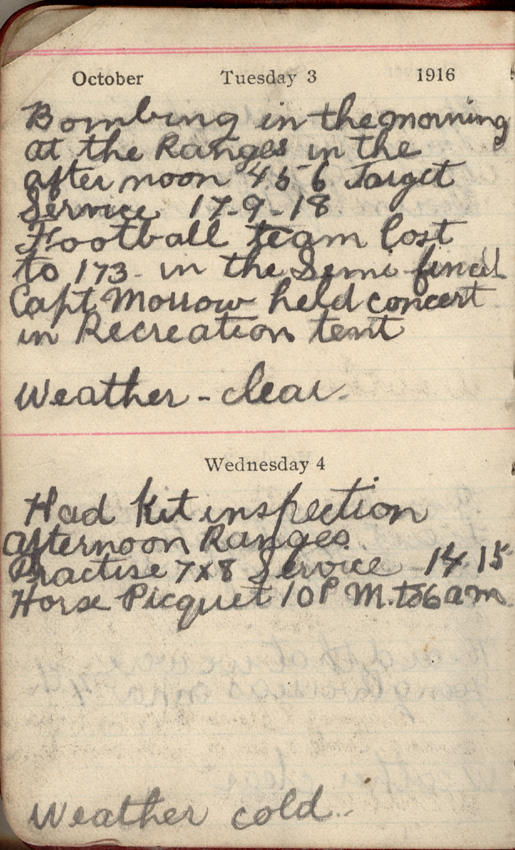 October Tuesday 3 1916
Bombing in the morning
at the Ranges in the
after noon 4 5 6 Target
Service 17-9-18
Football team lost
to 173 in the Semi final
Capt Morrow held concert
in Recreation tent
Weather - clear
Wednesday 4
Had kit inspection
afternoon Ranges
Practise 7x8 Service 14 15
Horse Picquet 10 P M. to 6 am
Weather cold